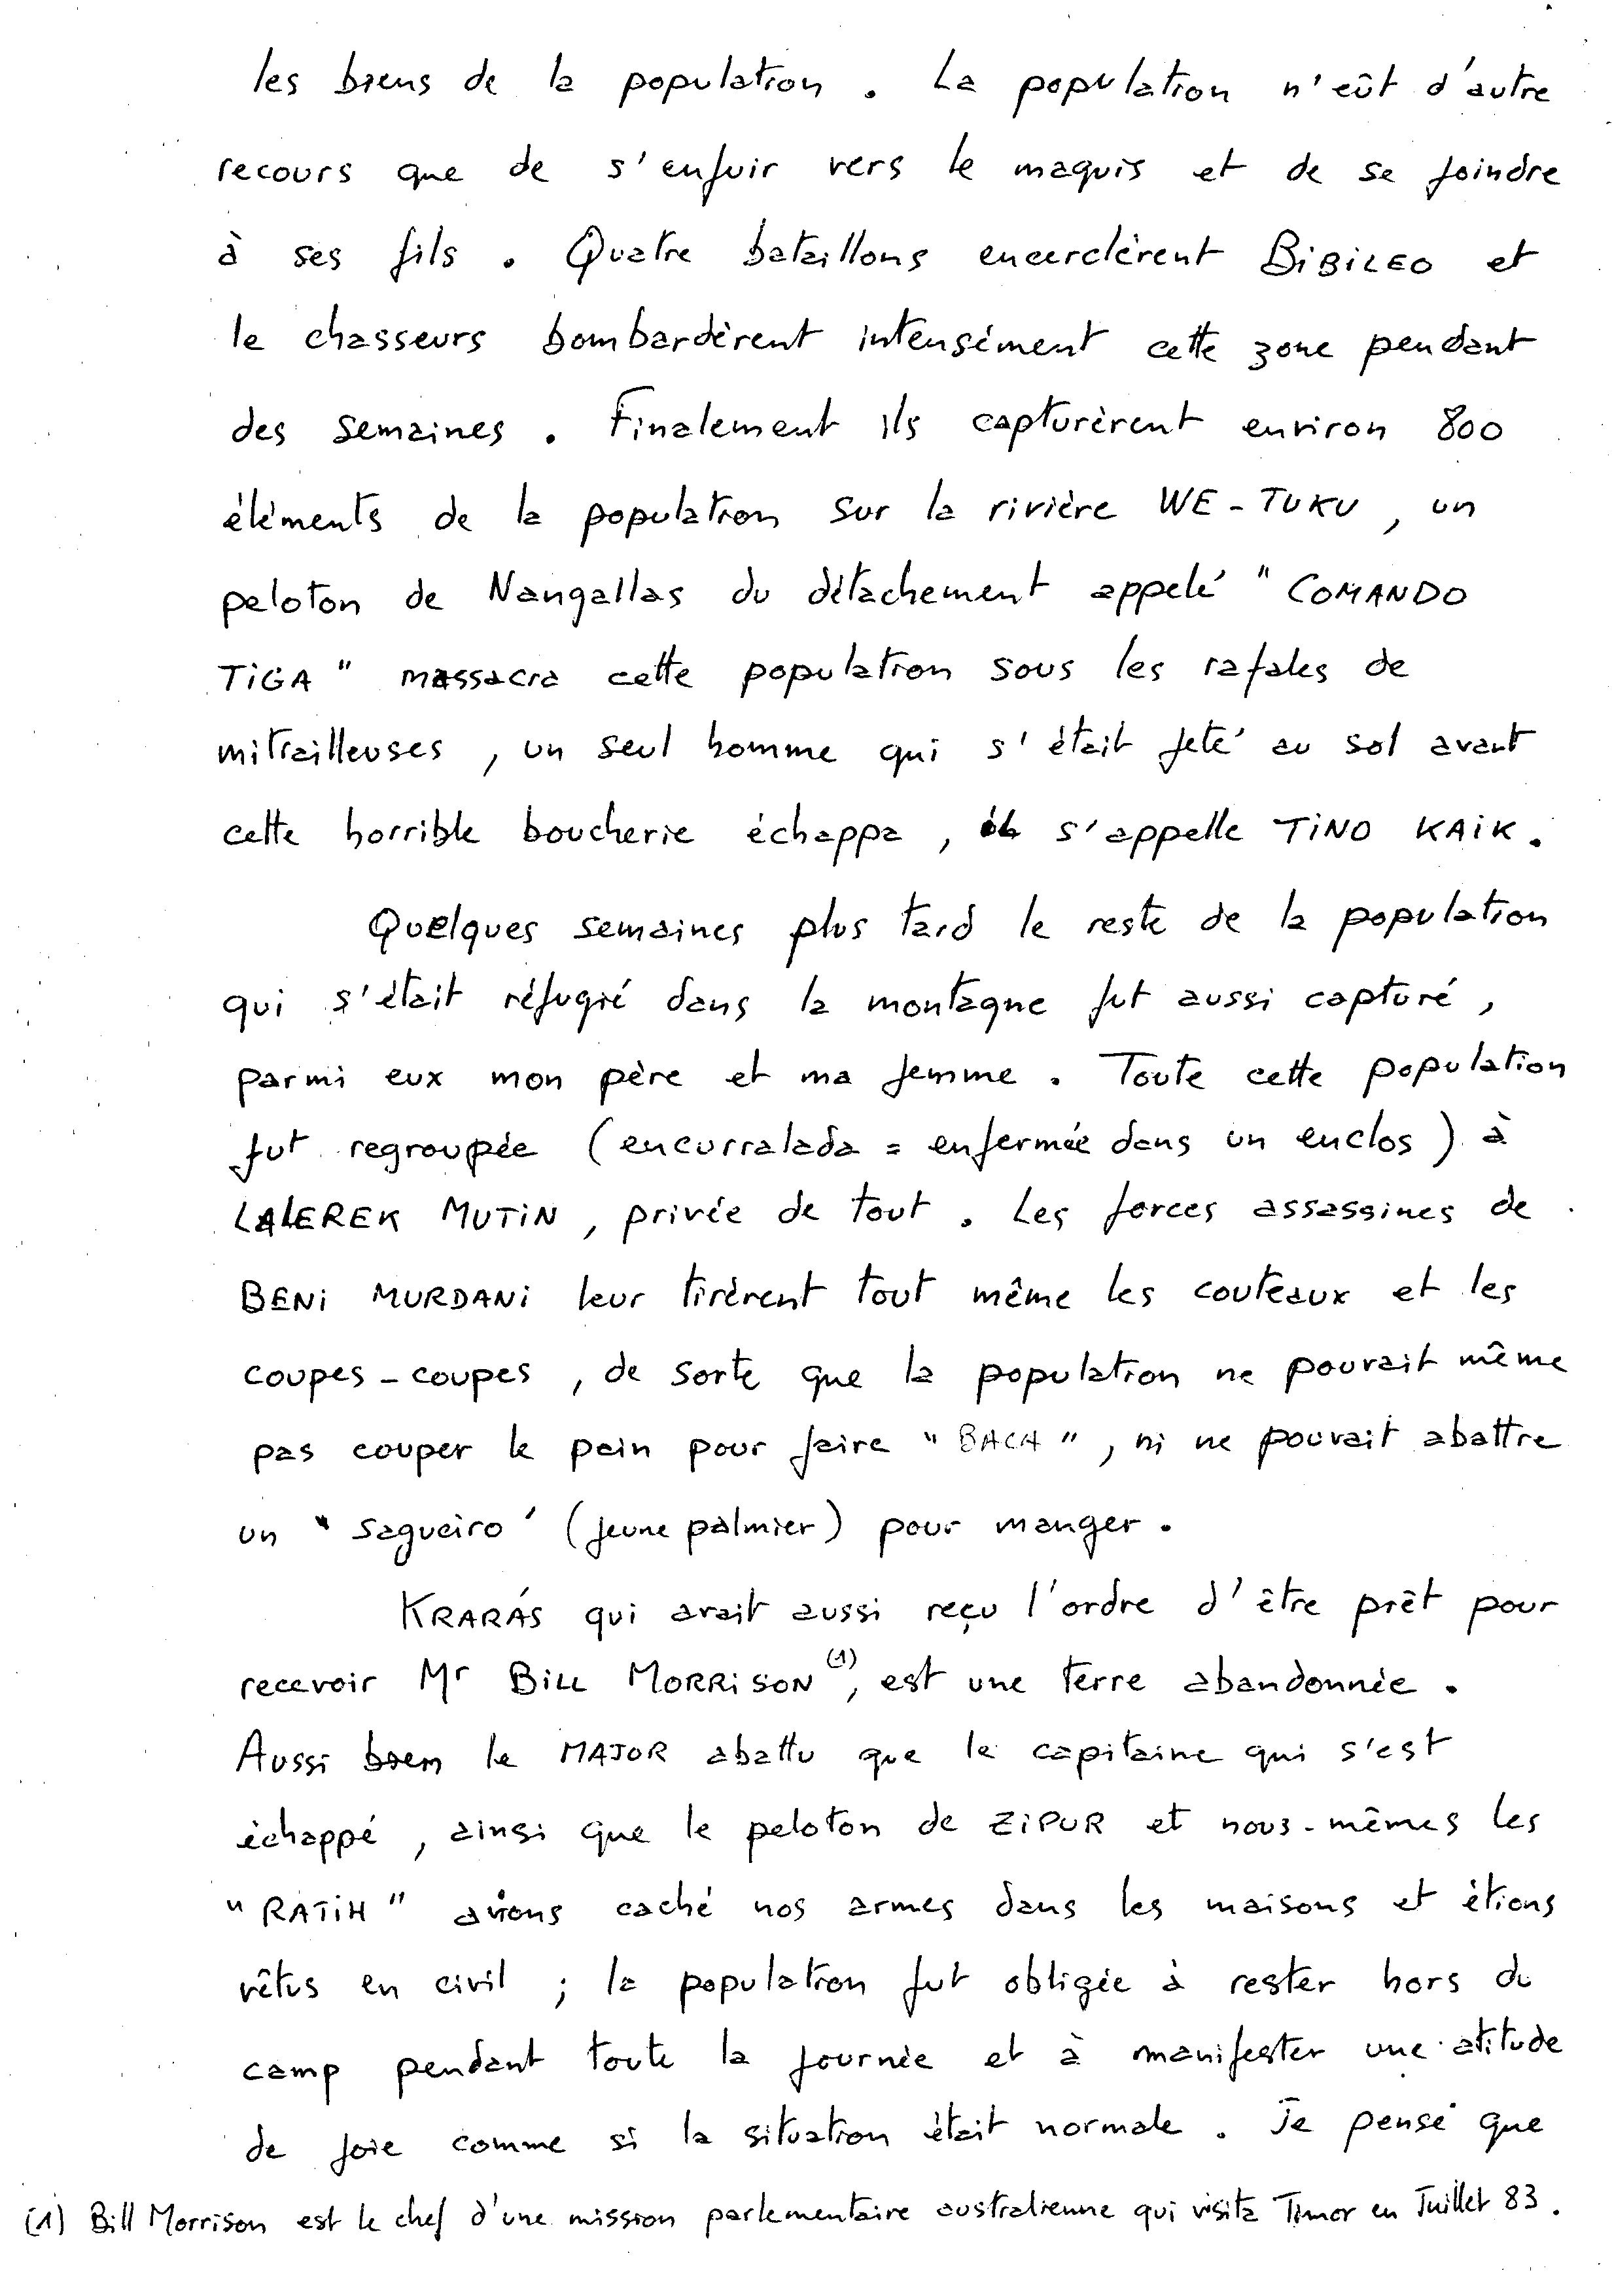 les biens de la population . La population n'eût d'autre
recours que de s'enfuir vers le maquis et de se joindre
à ses fils . Quatre bataillons encerclèrent BiBiLEO et
le chasseurs bombardèrent intensément cette zone pendant
des semaines . Finalement ils capturèrent environ 800
éléments de la population sur la rivière WE-TUKU , un
peloton de Nangallas du détachement appelé " COMANDO
TiGA " massacra cette population sous les rafales de
mitrailleuses , un seul homme qui s'était jeté au sol avant
cette horrible boucherie échappa , il s'appelle TiNO KAiK .
Quelques semaines plus tard le reste de la population
qui s'était réfugié dans la montagne fut aussi capturé ,
parmi eux mon père et ma femme . Toute cette population
fut regroupée (encurralada = enfermée dans un enclos) à
LALEREK MUTiN , privée de tout . Les forces assassines de
BENi MURDANi leur tirèrent tout même les couteaux et les
coupes-coupes , de sorte que la population ne pouvait même
pas couper le pain pour faire " BACA " , ni ne pouvait abattre
un " sagueiro ' (jeune palmier) pour manger .
KRARÁS qui avait aussi reçu l'ordre d'être prêt pour
recevoir Mr BiLL MORRiSON (1) , est une terre abandonnée .
Aussi bien le MAJOR abattu que le capitaine qui s'est
échappé , ainsi que le peloton de ZiPUR et nous-mêmes les
" RATiH " avions caché nos armes dans les maisons et étions
vêtus en civil ; la population fut obligée à rester hors du
camp pendant toute la journée et à manifester une atitude
de joie comme si la situation était normale . Je pense que
(1) Bill Morrison est le chef d'une mission parlementaire australienne qui visita Timor en Juillet 83 .